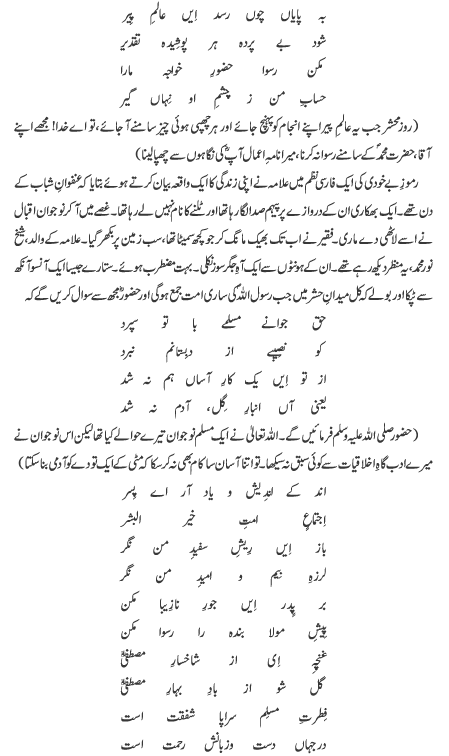 بہ پایاں چوں رسد ایں عالمِ پیر
شود بے پردہ ہر پوشیدہ تقدیر
مکن رسوا حضورِ خواجہ مارا
حسابِ من ز چشمِ او نہاں گیر
(روزِ محشر جب یہ عالمِ پیر اپنے انجام کو پہنچ جائے اور ہر چھپی ہوئی چیز سامنے آ جائے، تو اے خدا! مجھے اپنے
آقا، حضرت محمدؐ کے سامنے رسوا نہ کرنا، میرا نامہِ اعمال آپؐ کی نگاہوں سے چھپا لینا)
رموزِ بے خودی کی ایک فارسی نظم میں علامہ نے اپنی زندگی کا ایک واقعہ بیان کرتے ہوئے بتایا کہ عنفوانِ شباب کے
دن تھے۔ ایک بھکاری ان کے دروازے پر پیہم صدا لگا رہا تھا اور ٹلنے کا نام نہیں لے رہا تھا۔ غصے میں آ کر نوجوان اقبال
نے اسے لاٹھی دے ماری۔ فقیر نے اب تک بھیک مانگ کر جو کچھ سمیٹا تھا، سب زمین پر بکھر گیا۔ علامہ کے والد، شیخ
نور محمد، یہ منظر دیکھ رہے تھے۔ ان کے ہونٹوں سے ایک آہِ جگر سوز نکلی۔ بہت مضطرب ہوئے۔ ستارے جیسا ایک آنسو آنکھ
سے ٹپکا اور بولے کہ کل میدانِ حشر میں جب رسول اللہؐ کی ساری امت جمع ہو گی اور حضورؐ مجھ سے سوال کریں گے کہ
حق جوانے مسلمے با تو سپرد
کو نصیبے از دبستانم نبرد
از تو ایں یک کارِ آساں ہم نہ شد
یعنی آں انبارِ گِل، آدم نہ شد
(حضور صلی اللہ علیہ وسلم فرمائیں گے۔ اللہ تعالیٰ نے ایک مسلم نوجوان تیرے حوالے کیا تھا لیکن اس نوجوان نے
میرے ادب گاہِ اخلاقیات سے کوئی سبق نہ سیکھا۔ تو اتنا آسان سا کام بھی نہ کر سکا کہ مٹی کے ایک تودے کو آدمی بنا سکتا)
اند کے اندیش و یاد آر اے پسر
اجتماعِ امتِ خیر البشر
باز ایں ریشِ سفیدِ من نگر
لرزہِ بیم و امیدِ من نگر
بر پدر ایں جورِ نازیبا مکن
پیشِ مولا بندہ را رسوا مکن
غنچہِ ای از شاخسارِ مصطفیٰؐ
گل شو از بادِ بہارِ مصطفیٰؐ
فطرتِ مسلم سراپا شفقت است
در جہاں دست و زبانش رحمت است